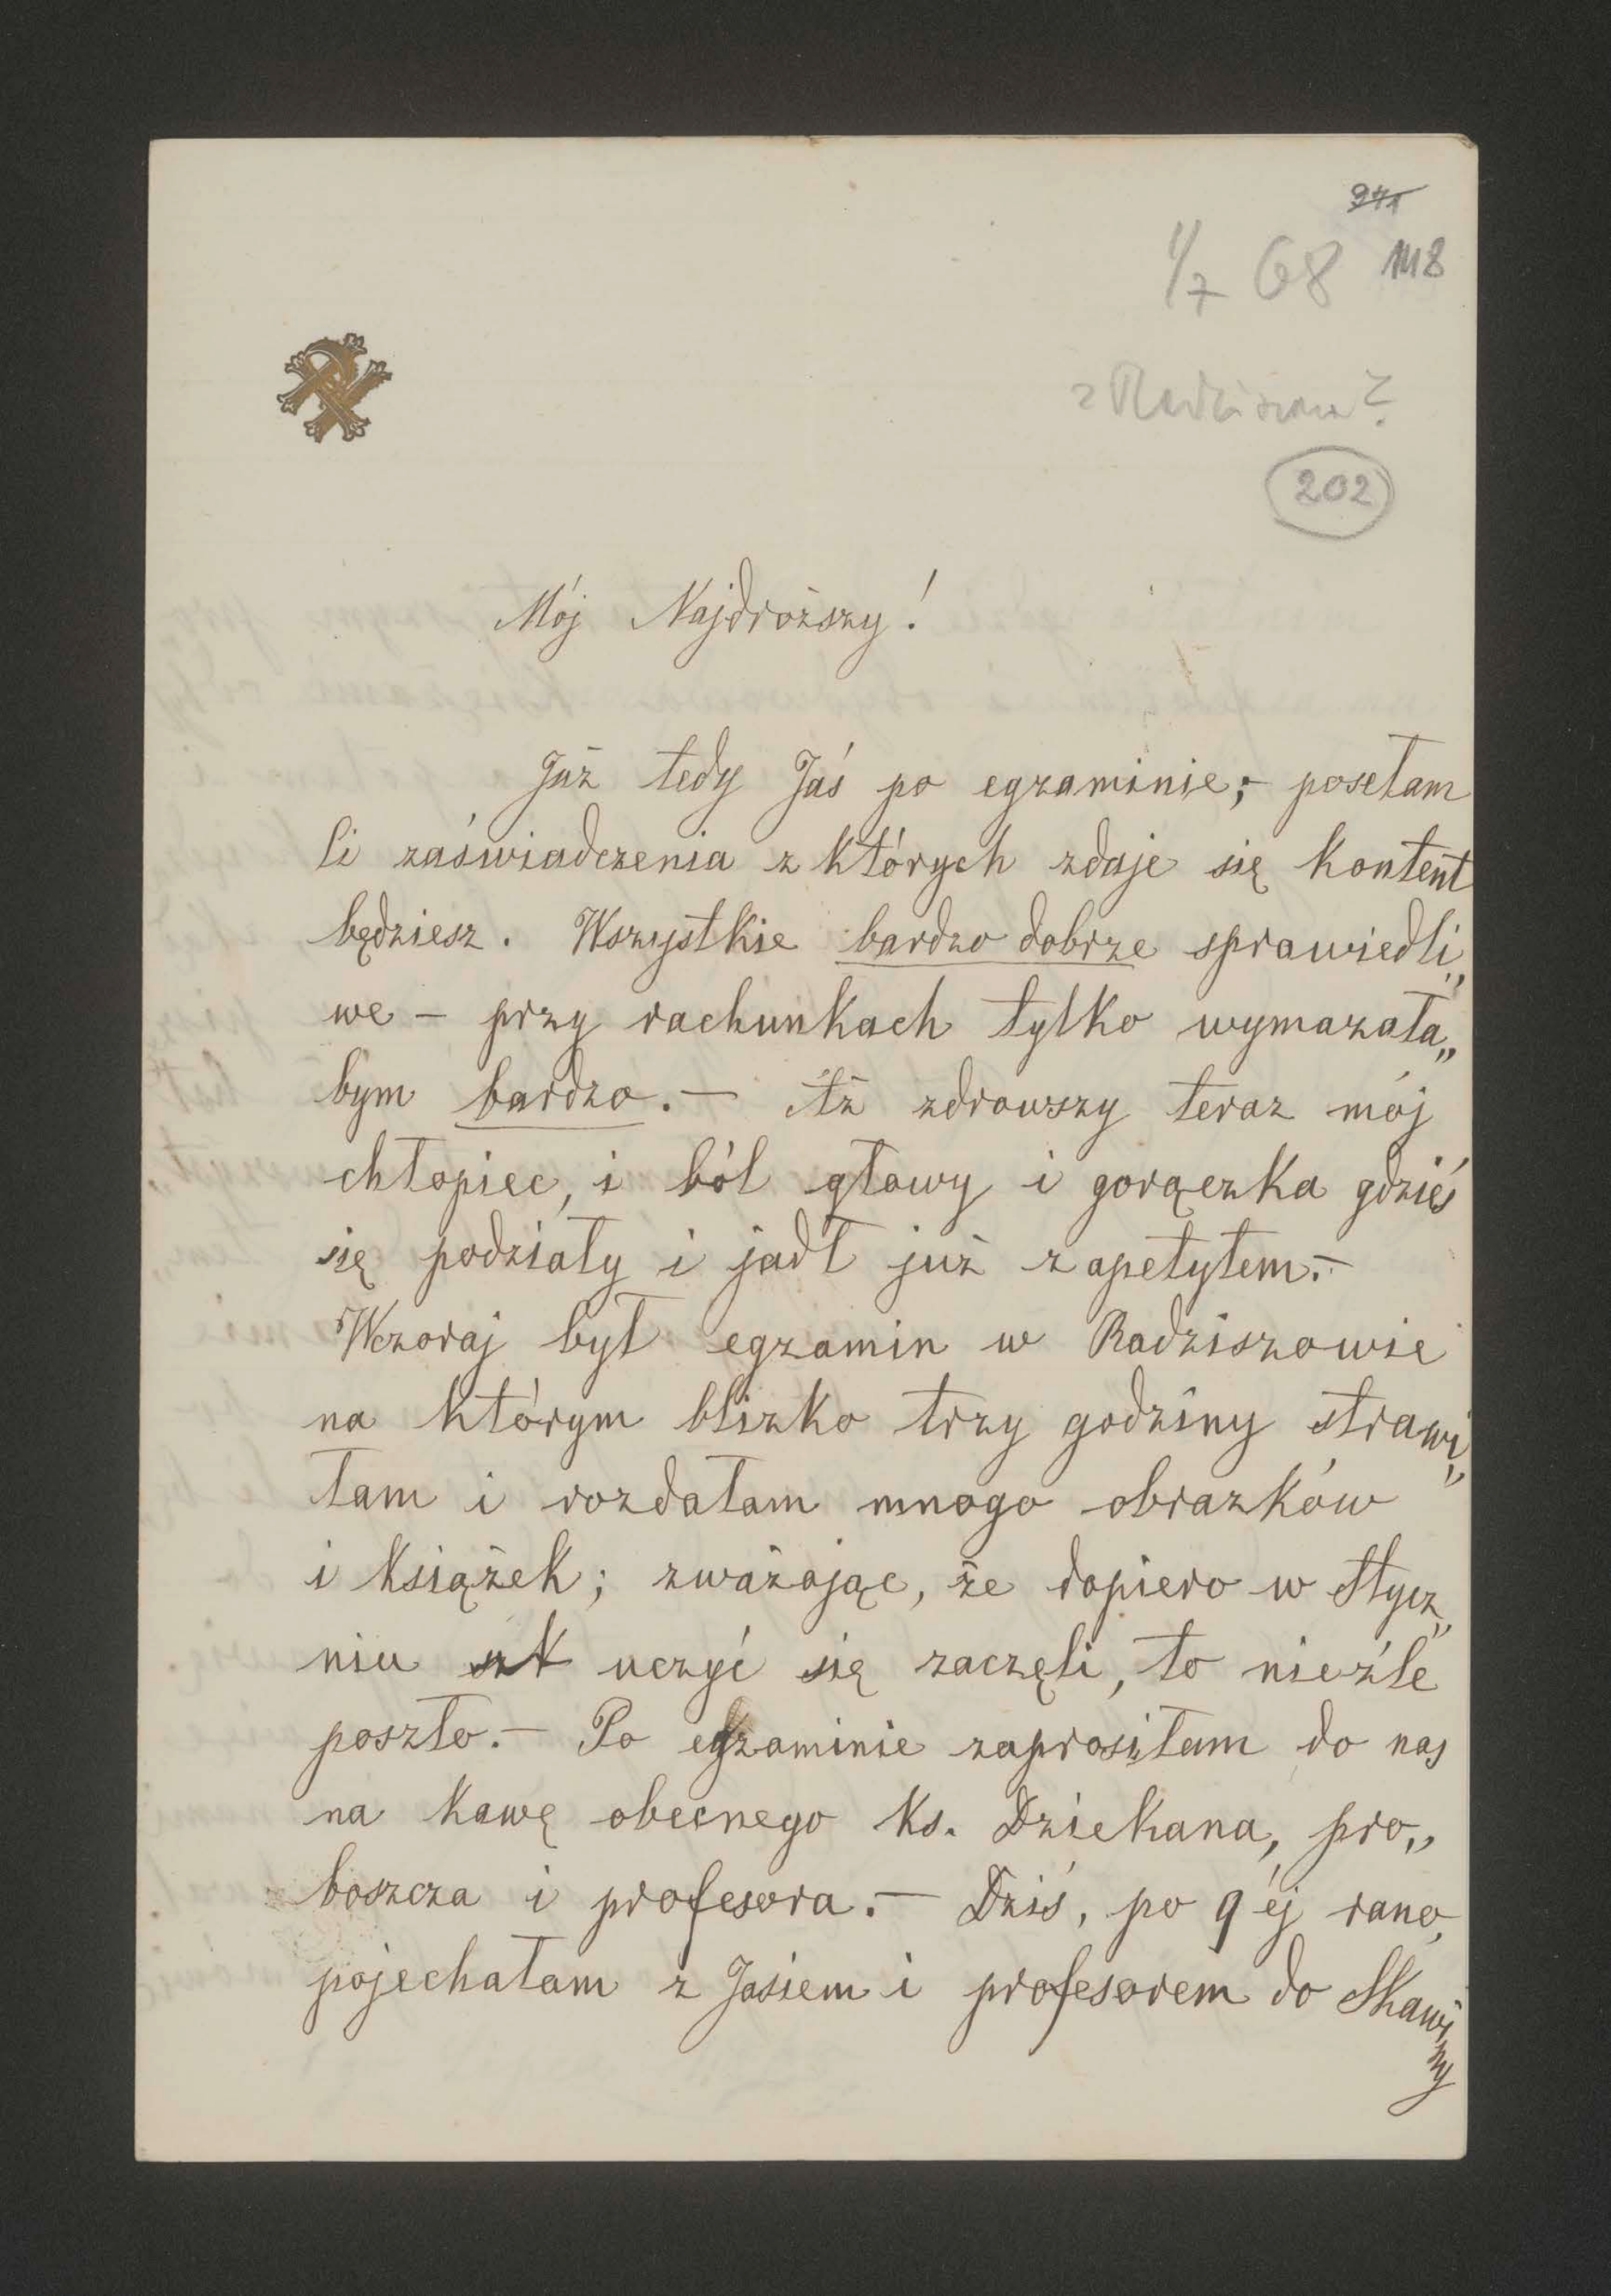 1/7 68 118
202
Mój Najdroższy!
Już tedy Jaś po egzaminie; – posełam
Ci zaświadczenia z których zdaje się kontent
będziesz. Wszystkie bardzo dobrze sprawiedli„
we – przy rachunkach tylko wymazała„
bym bardzo. – Aż zdrowszy teraz mój
chłopiec, i ból głowy i gorączka gdzieś
się podziały i jadł już z apetytem. –
Wczoraj był egzamin w Radziszowie
na którym blizko trzy godziny strawi„
łam i rozdałam mnogo obrazków
i książek; zważając, że dopiero w Stycz„
niu uczyć się zaczęli, to nieźle
poszło. – Po egzaminie zaprosiłam do nas
na kawę obecnego Ks. Dziekana, pro„
boszcza i profesora. – Dziś, po 9 éj rano,
pojechałam z Jasiem i profesorem do Skawiny